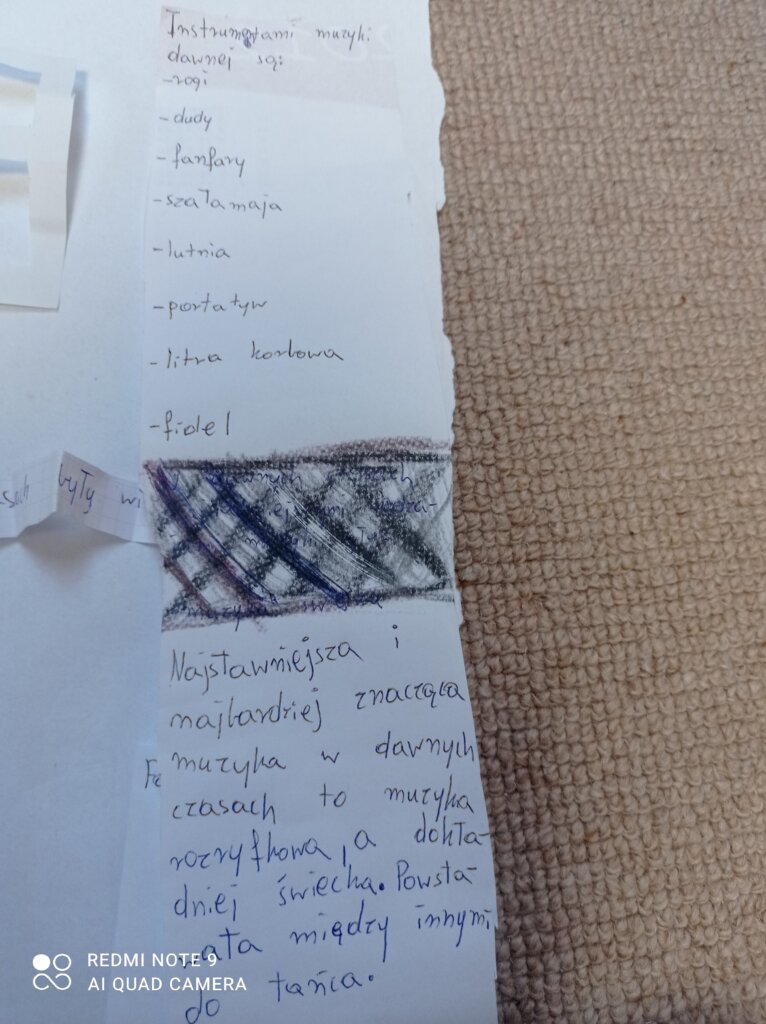 Instrumentami muzyki
dawnej są:
-rogi
-dudy
-fanfary
-szałamaja
-lutnia
-portatyw
-litra korbowa
-fidel
sach były wi
Najsławniejsza i
najbardziej znacząca
muzyka w dawnych
czasach to muzyka
rozryfkowa, a dokła-
dniej świecka. Powsta-
wała między innymi
do tańca.
REDMI NOTE 9
AI QUAD CAMERA